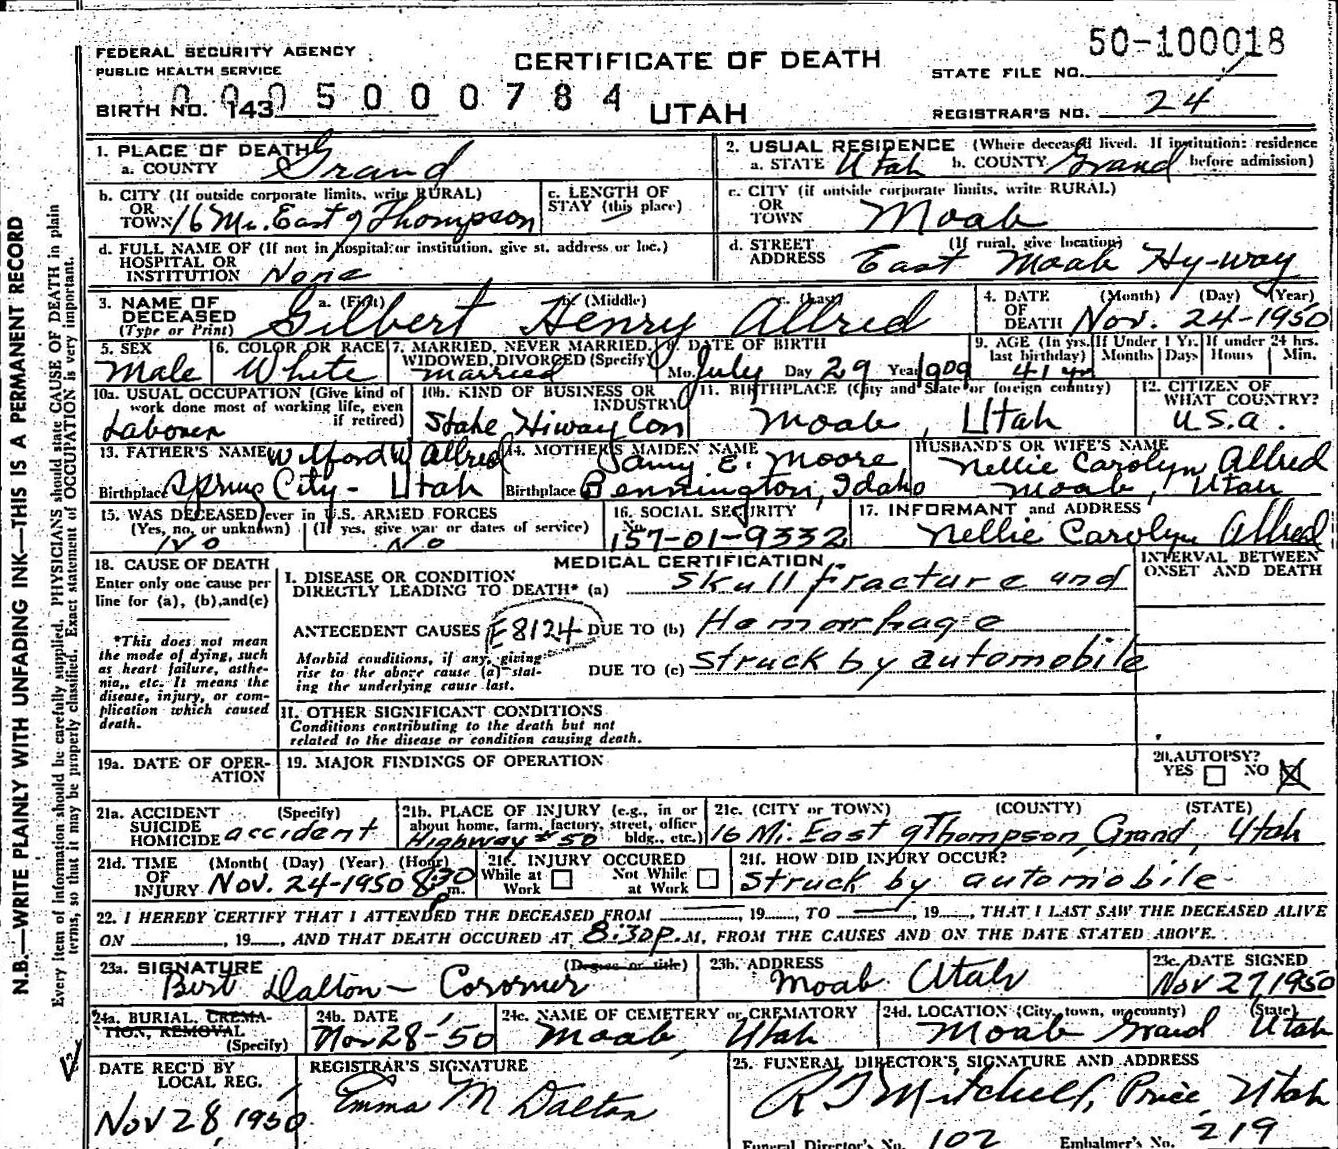 50-100018
FEDERAL SECURITY AGENCY
PUBLIC HEALTH SERVICE
CERTIFICATE OF DEATH
STATE FILE NO.
0005000784
BIRTH NO. 143
UTAH
REGISTRAR'S NO. 24
1. PLACE OF DEATH
a. COUNTY Grand
2. USUAL RESIDENCE (Where deceased lived. If institution: residence before admission)
a. STATE Utah b. COUNTY Grand
b. CITY (If outside corporate limits, write RURAL)
OR
TOWN 16 Mi. East of Thompson
c. LENGTH OF
STAY (this place)
c. CITY (if outside corporate limits, write RURAL)
OR
TOWN Moab
d. FULL NAME OF (If not in hospital or institution, give st. address or loc.)
HOSPITAL OR
INSTITUTION None
d. STREET (If rural, give location)
ADDRESS East Moab Hy-way
3. NAME OF DECEASED (Type or Print)
a. (First) b. (Middle) c. (Last)
Gilbert Henry Allred
4. DATE OF DEATH (Month) (Day) (Year)
Nov. 24-1950
5. SEX
Male
6. COLOR OR RACE
White
7. MARRIED, NEVER MARRIED, WIDOWED, DIVORCED (Specify)
Married
8. DATE OF BIRTH
Mo. July Day 29 Year 1909
9. AGE (In yrs. last birthday) If Under 1 Yr. Months Days If under 24 hrs. Hours Min.
41 yr
10a. USUAL OCCUPATION (Give kind of work done most of working life, even if retired)
Laborer
10b. KIND OF BUSINESS OR INDUSTRY
State Hiway Con
11. BIRTHPLACE (City and State or foreign country)
Moab, Utah
12. CITIZEN OF WHAT COUNTRY?
U.S.a.
13. FATHER'S NAME Wilford W Allred
Birthplace Spring City - Utah
14. MOTHER'S MAIDEN NAME
E. Moore
Birthplace Bennington, Idaho
HUSBAND'S OR WIFE'S NAME
Nellie Carolyn Allred
Moab, Utah
15. WAS DECEASED ever in U.S. ARMED FORCES
(Yes, no, or unknown) (If yes, give war or dates of service)
No No
16. SOCIAL SECURITY No.
157-01-9332
17. INFORMANT and ADDRESS
Nellie Carolyn Allred
18. CAUSE OF DEATH
Enter only one cause per line for (a), (b), and (c)
*This does not mean the mode of dying, such as heart failure, asthenia, etc. It means the disease, injury, or complication which caused death.
MEDICAL CERTIFICATION
INTERVAL BETWEEN ONSET AND DEATH
I. DISEASE OR CONDITION
DIRECTLY LEADING TO DEATH* (a) Skull fracture and
ANTECEDENT CAUSES E8124 DUE TO (b) Hemorrhage
Morbid conditions, if any, giving rise to the above cause (a) stating the underlying cause last.
DUE TO (c) struck by automobile
II. OTHER SIGNIFICANT CONDITIONS
Conditions contributing to the death but not
related to the disease or condition causing death.
19a. DATE OF OPERATION
19. MAJOR FINDINGS OF OPERATION
20. AUTOPSY?
YES NO
21a. ACCIDENT SUICIDE HOMICIDE (Specify)
accident
21b. PLACE OF INJURY (e.g., in or about home, farm, factory, street, office bldg., etc.)
Highway # 50
21c. (CITY or TOWN) (COUNTY) (STATE)
16 Mi. East of Thompson, Grand, Utah
21d. TIME OF INJURY (Month) (Day) (Year) (Hour)
Nov. 24-1950 8:30 P m.
21e. INJURY OCCURED
While at Work Not While at Work
21f. HOW DID INJURY OCCUR?
Struck by automobile.
22. I HEREBY CERTIFY THAT I ATTENDED THE DECEASED FROM , 19 , TO , 19 , THAT I LAST SAW THE DECEASED ALIVE
ON , 19 , AND THAT DEATH OCCURED AT 8:30 P.M, FROM THE CAUSES AND ON THE DATE STATED ABOVE.
23a. SIGNATURE (Degree or title)
Bert Dalton - Coroner
23b. ADDRESS
Moab Utah
23c. DATE SIGNED
Nov 27 1950
24a. BURIAL, CREMATION, REMOVAL (Specify)
24b. DATE
Nov 28-'50
24c. NAME OF CEMETERY or CREMATORY
Moab, Utah
24d. LOCATION (City, town, or county) (State)
Moab Grand Utah
DATE REC'D BY LOCAL REG.
Nov 28, 1950
REGISTRAR'S SIGNATURE
Emma M Dalton
25. FUNERAL DIRECTOR'S SIGNATURE AND ADDRESS
R J Mitchell, Price, Utah
Funeral Director's No. 102 Embalmer's No. 219
N.B.—WRITE PLAINLY WITH UNFADING INK—THIS IS A PERMANENT RECORD
Every item of information should be carefully supplied. PHYSICIANS should state CAUSE OF DEATH in plain
terms, so that it may be properly classified. Exact statement of OCCUPATION is very important.